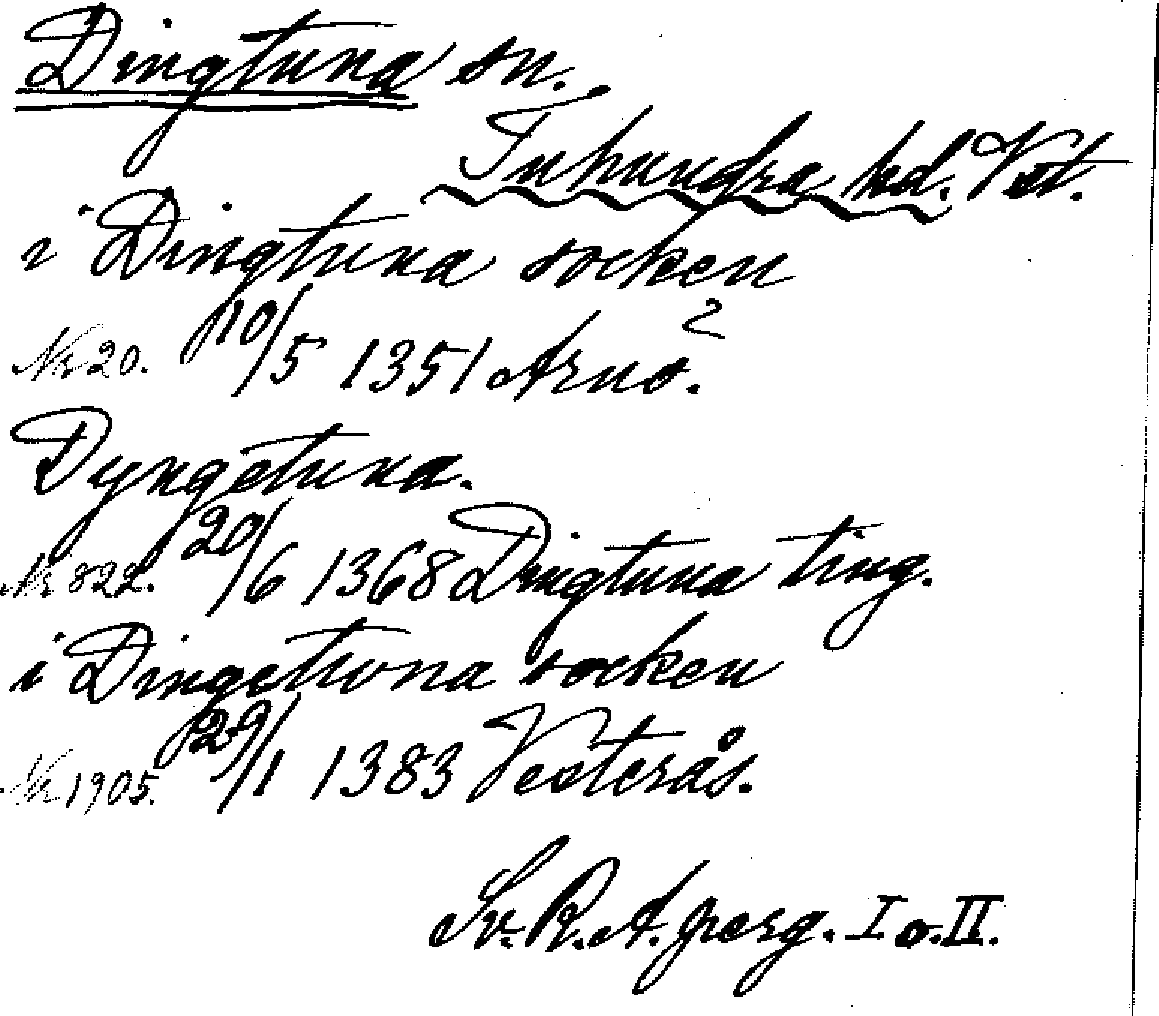 Dingtuna sn.
Tuhundra hd. Vst.
i Dingtuna socken
Nr 20. 10/5 1351 Arnö.
Dyngetuna.
Nr 822. 20/6 1368 Dingtuna ting.
i Dingethona socken
Nr 1905. 29/1 1383 Vesterås.
Sv. R. A. perg. I o. II.